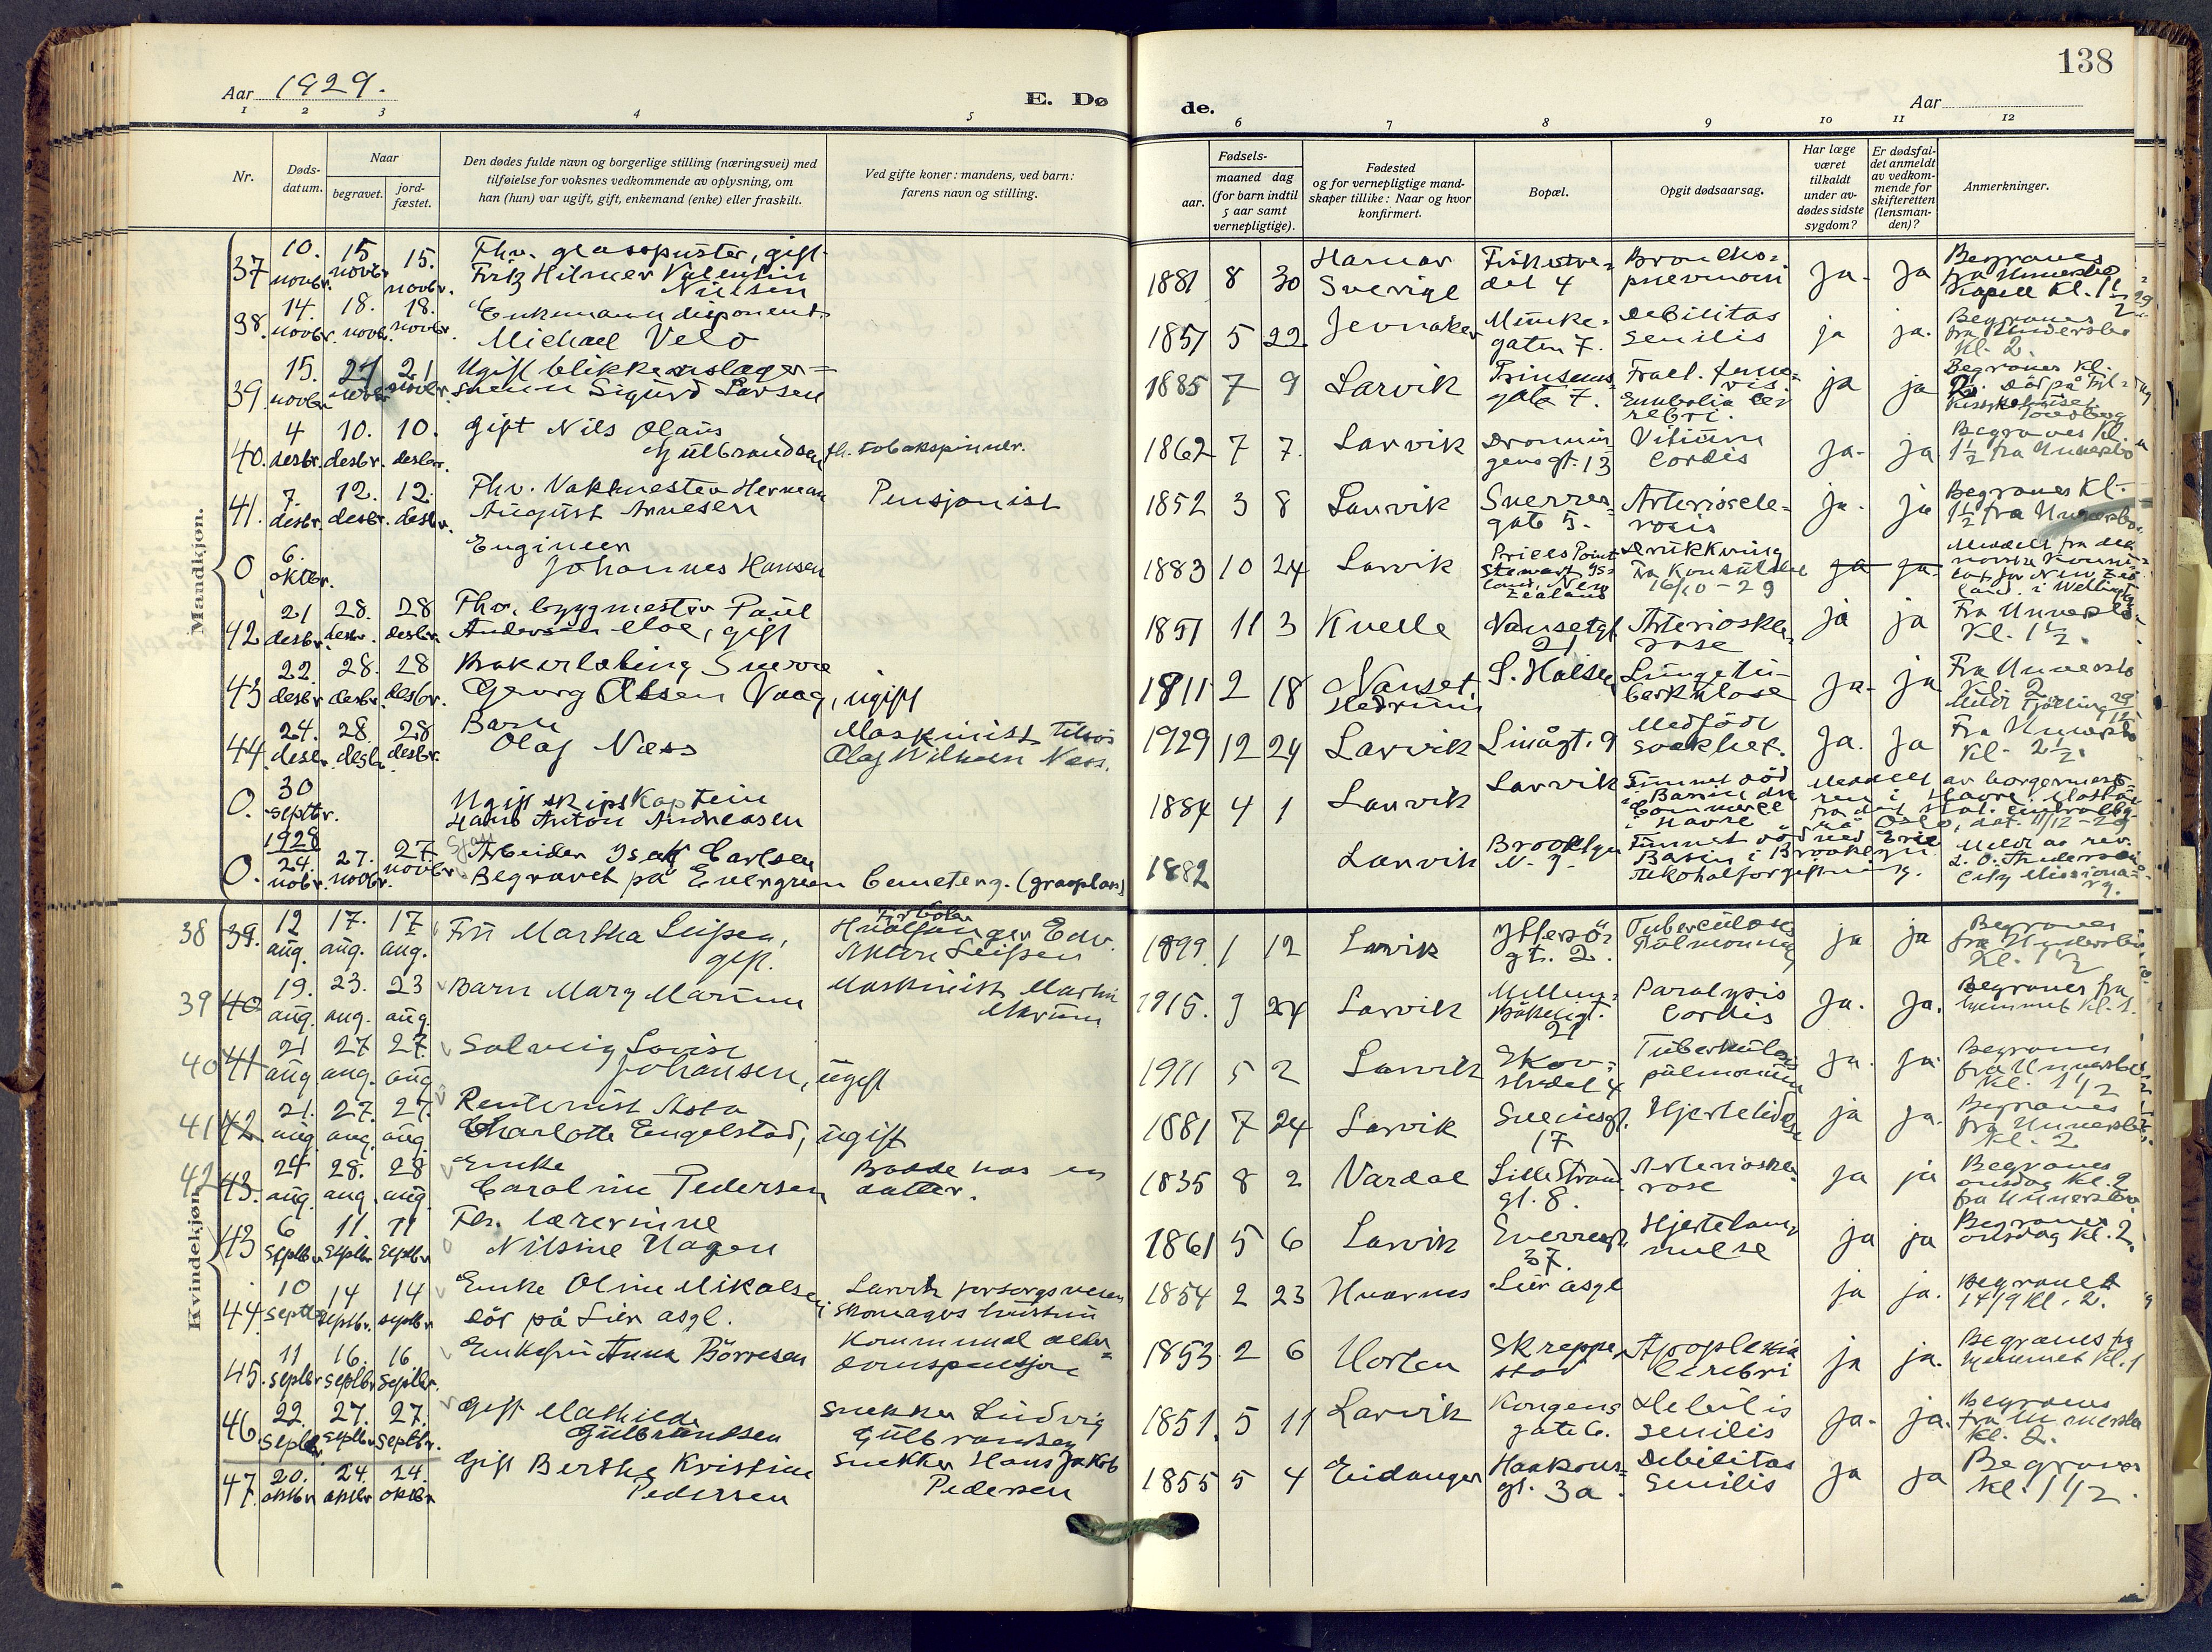 138
Aar 1929.
E. Dø
de.
Aar
1 2 3 4 5
6 7 8 9 10 11 12
Nr.
Døds-
datum.
Naar
begravet.
jord-
fæstet.
Den dødes fulde navn og borgerlige stilling (næringsvei) med
tilføielse for voksnes vedkommende av oplysning, om
han (hun) var ugift, gift, enkemand (enke) eller fraskilt.
Ved gifte koner: mandens, ved barn:
farens navn og stilling.
Fødsels-
aar.
maaned dag
(for barn indtil
5 aar samt
vernepligtige).
Fødested
og for vernepligtige mand-
skaper tillike: Naar og hvor
konfirmert.
Bopæl.
Opgit dødsaarsag.
Har læge
været
tilkaldt
under av-
dødes sidste
sygdom?
Er dødsfal-
det anmeldt
av vedkom-
mende for
skifteretten
(lensman-
den)?
Anmerkninger.
Mandkjøn.
37 10. novbr. 15 novbr. 15. novbr. Fhv. glasspuster, gift
Fritz Hilmer Valentin
Nilsen
1881 8 30 Sverige ja- ja
Broncho-
pneumoni
Begraves
Kapell Kl. 1½
38. 14. novbr. 18. novb. 18. novbr. Enkemann disponent
Michael Velo
1851 5 22 Jevnaker Munke-
gaten 7. Debilitas
senilis ja ja. Begraves
Kl. 2.
39 15. novbr. 21 novbr. 21 novbr. Ugift blikkenslager-
svenn Sigurd Larsen
1885 7 9 Larvik Prinsens
gate 7. ja ja Begraves Kl.
40. 4 desbr. 10. desbr. 10. desbr. gift Nils Olaus
Gulbrandsen fh. tobakspinner.
1862 7 7. Larvik Dronnin
gens gt. 13 Vitium
Cordis ja- ja Begraves Kl.
41. 7. desbr. 12. desbr. 12. desbr. Fhv. Vaktmester Herman
August Arnesen Pensjonist
1852 3 8 Larvik Sverres
gate 5. Arterioscle-
rosis ja- ja Begraves Kl.
0 6. oktbr. Engineer
Johannes Hansen
1883 10 24 Larvik Drukkning
Fra Konsulatet
16/10-29 ja ja
42 21 desbr. 28. desbr. 28 desbr. Fhv. byggmester Paul
Andersen Moe, gift
1851 11 3 Kvelle Nansetgt
21 Arterioskle-
rose ja ja
Kl. 1½.
43 22. desbr 28. desbr 28 desbr. Bakerlærling Sverre
Georg Olsen Vaag, ugift
1911 2 18 Nanset,
Hedrum S. Halsen Lungetu-
berkulose ja- ja
44 24. desb. 28. desbr. 28 desbr. Barn
Olaf Næss Maskinist tilsjøs
Olaf Wilhelm Næss.
1929 12 24 Larvik Linågt. 9 Medfödt
svakhet. ja. ja
Kl. 2½.
0. 30 septbr. Ugift skipskaptein
Hans Anton Andreasen
1884 4 1 Larvik Larvik Funnet död
0. 1928 24. nobr. 27. novbr. 27. novbr Arbeider Isak Carlsen
Begravet på Evergreen Cemetery. (gravplass)
1882 Larvik Brooklyn
N. Y. Funnet död ved Erie
Basin i Brooklyn
Alkoholforgiftning.
Kvindekjøn.
38 39. 12 aug. 17. aug. 17 aug. Fru Martha Leifsen,
gift. Hvalfanger Edv.
1899. 1 12 Larvik gt. 2. Tuberculosis
Pulmonum ja ja Begraves
Kl. 1½
39 40 19. aug. 23. aug. 23 aug. Barn Mary Marum Maskinist Martin
Marum
1915. 9 24 Larvik Paralysis
Cordis ja. ja. Begraves fra
hjemmet Kl. 1.
40 41 21 aug 27 aug. 27. aug Solveig Lovise
Johansen, ugift
1911 5 2 Larvik Skov-
stredet 4 Tuberkulosis
pulmonum ja. ja. Begraves
Kl. 1½
41 42 21. aug. 27. aug. 27. aug Rentenist Asta
Charlotte Engelstad, ugift
1881 7 24 Larvik 17 Hjertelidelse ja ja. Begraves
Kl. 2
42 43. 24 aug. 28. aug. 28 aug Enke
Caroline Pedersen Bodde hos en
datter.
1835 8 2 Vardal Lille Strand
gt. 8. Arterioskle-
rose ja ja Begraves
onsdag Kl. 2
43 6 septbr 11. septbr 11 septbr Fh. lærerinne
Nilsine Hagen
1861 5 6 Larvik Sverresgt.
37. Hjertelam-
melse ja ja Begraves
onsdag Kl. 2.
44. 10 septbr 14 septbr. 14 septbr Enke Oline Mikalsen
död på Lier asyl. Larvik forsorgsvesen
skomagers hustru
1854 2 23 Hvarnes Lier asyl ja ja. Begravet
14/9 Kl. 2.
45. 11 septbr 16. septbr 16 septbr. Enkefru Anna Börresen Kommunal alder-
domspensjon
1853. 2 6 Horten Skreppe-
stad Apoplexia
Cerebri ja ja. Begraves fra
hjemmet Kl. 1
46 22. septbr. 27. septbr 27. septbr. Gift Mathilde
Gulbrandsen Snekker Ludvig
Gulbrandsen
1851. 5 11 Larvik Kongens
gate 6. Debilis
senilis ja- ja. Begraves
Kl. 2.
47 20. oktbr 24. oktbr 24. oktbr Gift Berthe Kristine
Pedersen Snekker Hans Jakob
Pedersen
1855 5 4 Eidanger Haakons-
gt. 3a. Debilitas
Senilis ja ja Begraves
Kl. 1½.